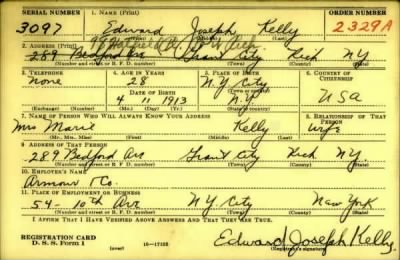 SERIAL NUMBER 1. NAME (Print) ORDER NUMBER
3097 Edward Joseph Kelly 2329A
(First) (Middle) (Last)
2. ADDRESS (Print)
289 Bedford Ave Grant City Rich NY
(Number and street or R. F. D. number) (Town) (County) (State)
3. TELEPHONE 4. AGE IN YEARS 5. PLACE OF BIRTH 6. COUNTRY OF CITIZENSHIP
None 28 N.Y. City
DATE OF BIRTH (Town or county)
4 11 1913 N.Y. USA
(Exchange) (Number) (Mo.) (Day) (Yr.) (State or country)
7. NAME OF PERSON WHO WILL ALWAYS KNOW YOUR ADDRESS 8. RELATIONSHIP OF THAT PERSON
Mrs Marie Kelly wife
(Mr., Mrs., Miss) (First) (Middle) (Last)
9. ADDRESS OF THAT PERSON
289 Bedford Ave Grant City Rich NY.
(Number and street or R. F. D. number) (Town) (County) (State)
10. EMPLOYER'S NAME
Armour & Co.
11. PLACE OF EMPLOYMENT OR BUSINESS
54 - 10th Ave N.Y. City New York
(Number and street or R. F. D. number) (Town) (County) (State)
I AFFIRM THAT I HAVE VERIFIED ABOVE ANSWERS AND THAT THEY ARE TRUE.
REGISTRATION CARD
D. S. S. Form 1 (over) 16-17105 Edward Joseph Kelly
(Registrant's signature)